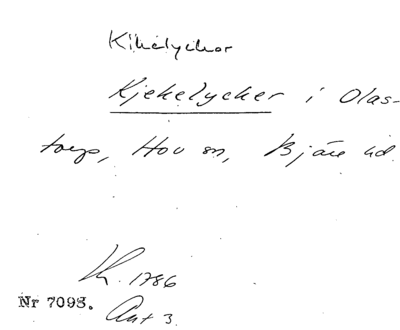 Kihelyckor
Kjekelycker i Olas-
torp, Hov sn, Bjäre hd.
Lh. 1786
Nr 7098. Akt 3.